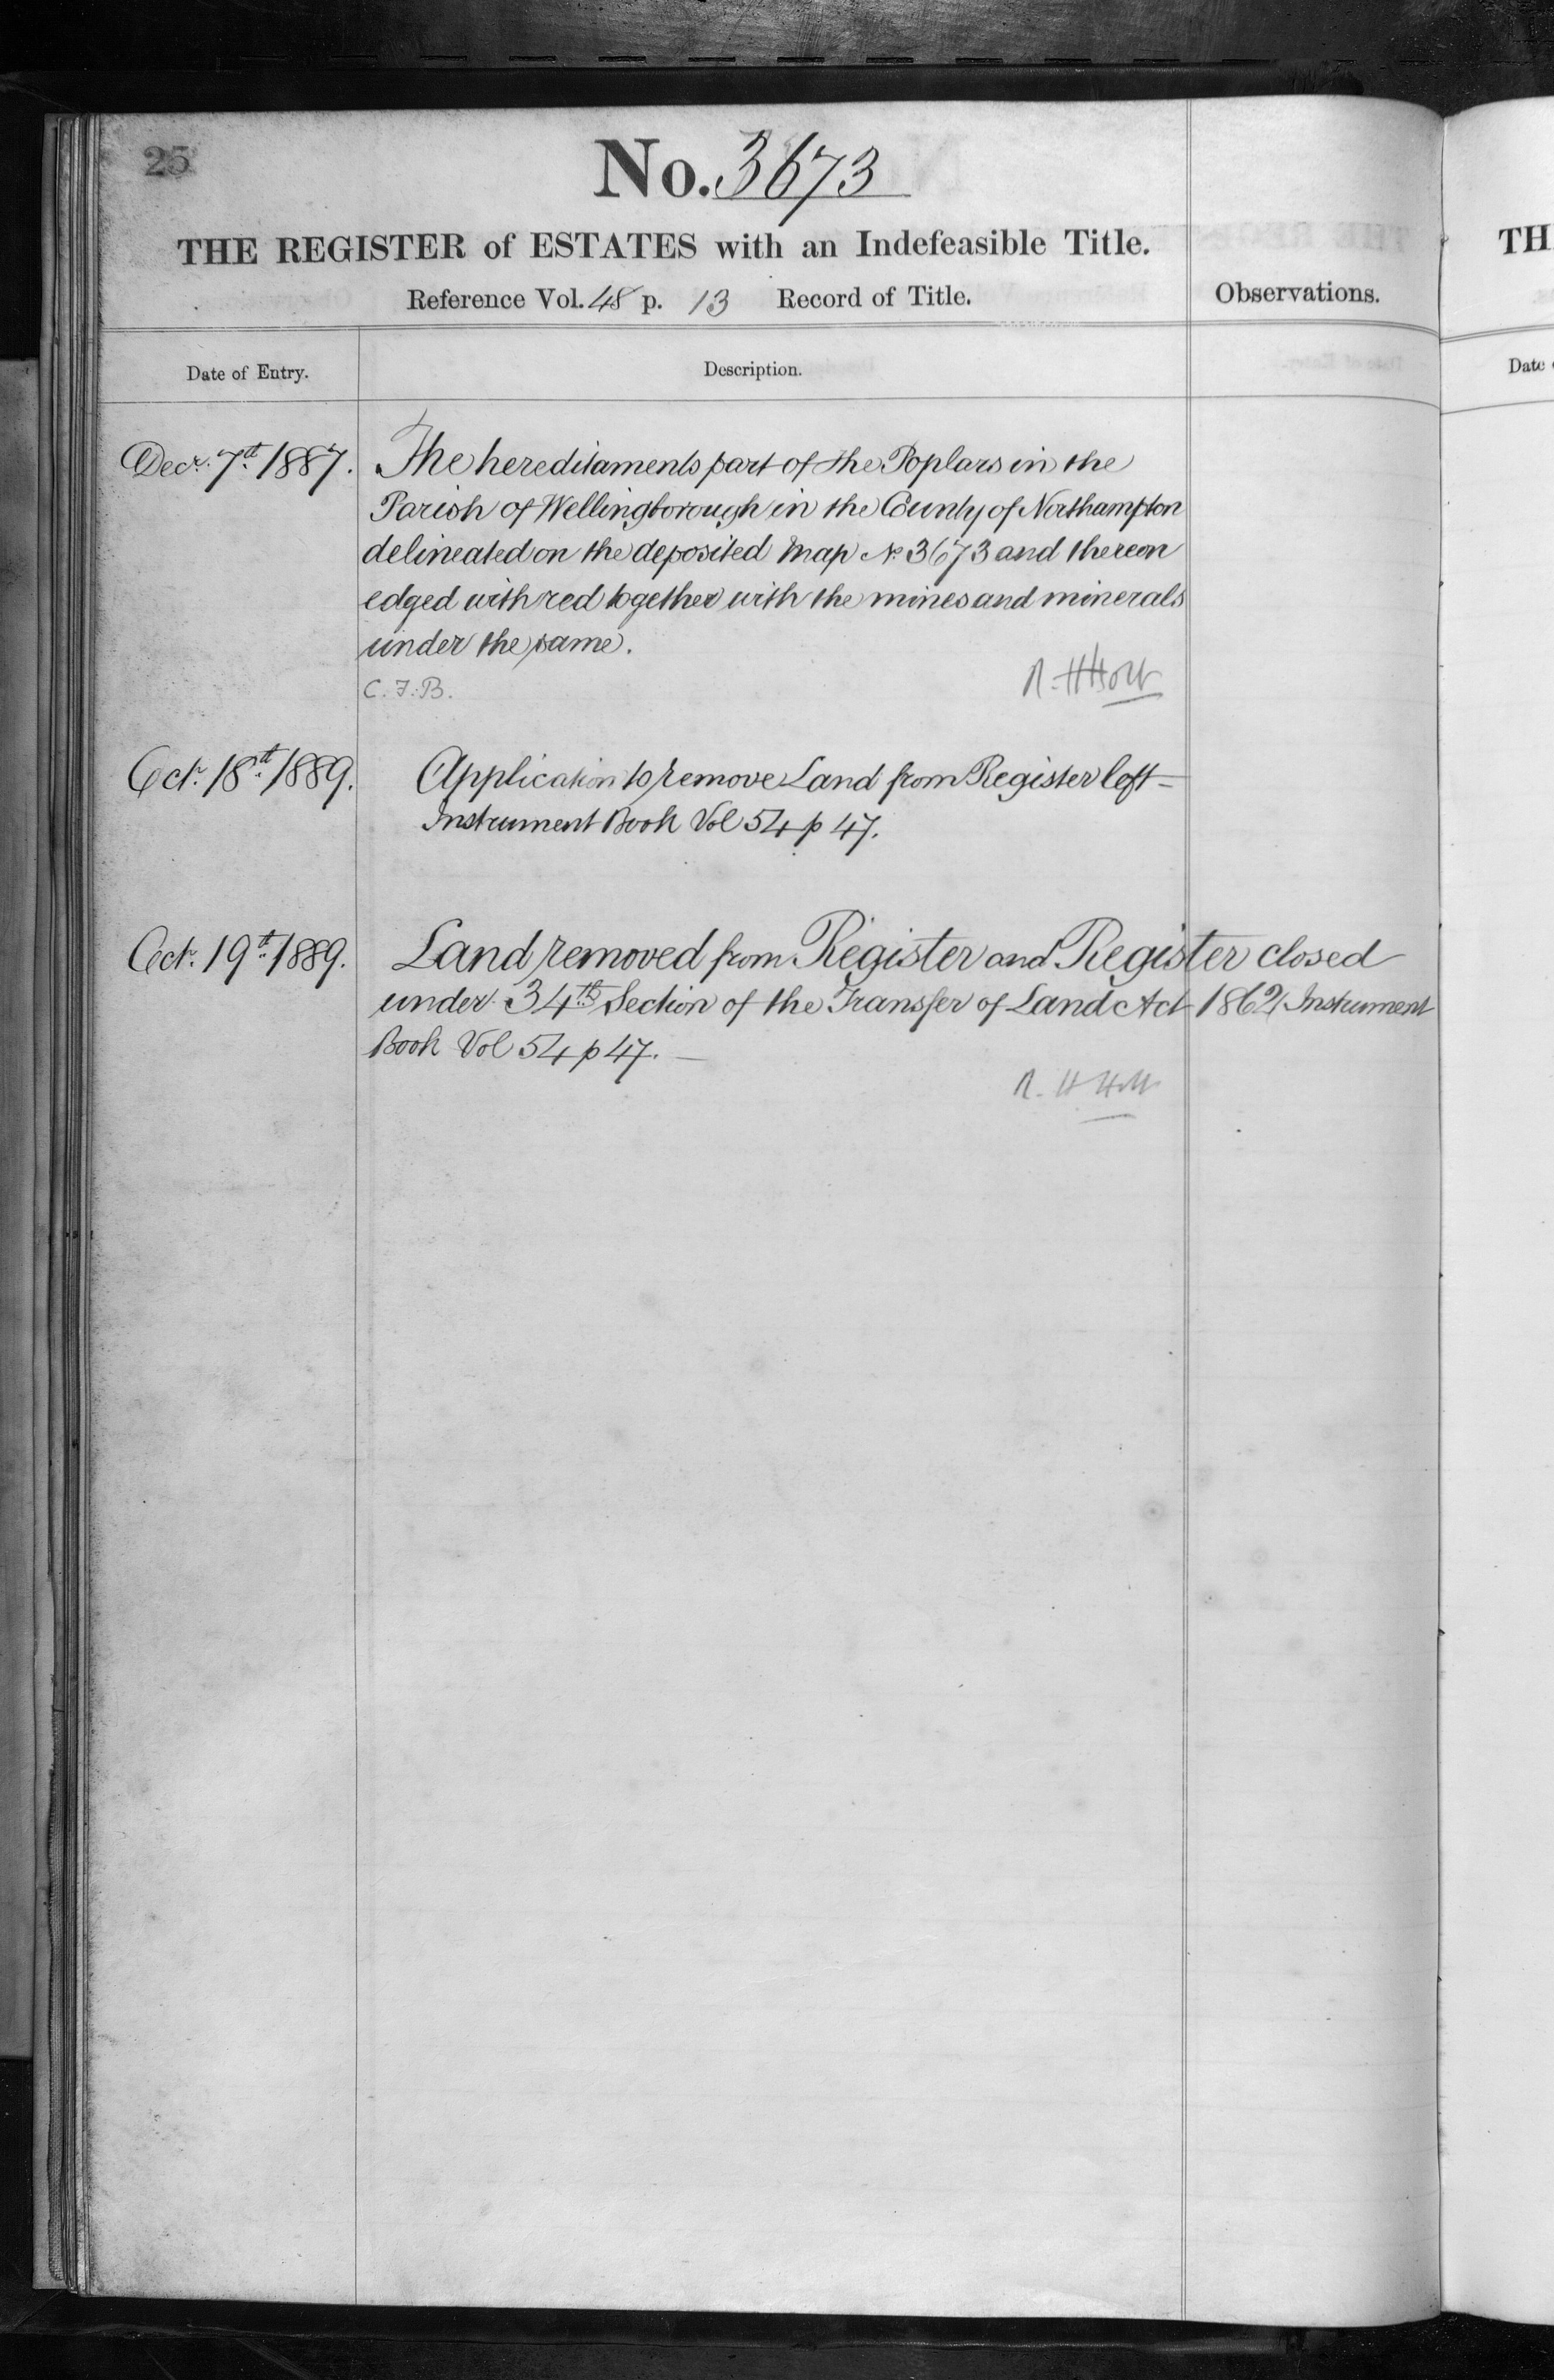 25
No. 3673
THE REGISTER of ESTATES with an Indefeasible Title.
Reference Vol. 48 p. 13 Record of Title.
Observations.
Date of Entry.
Description.
Decr. 7th 1887.
The hereditaments part of the Poplars in the
Parish of Wellingborough in the County of Northampton
delineated on the deposited Map No 3673 and thereon
edged with red together with the mines and minerals
under the same.
C. F. B.
R. H Holt
Octr. 18th 1889.
Application to remove Land from Register left —
Instrument Book Vol 54 p 47.
Octr. 19th 1889.
Land removed from Register and Register closed
under 34th Section of the Transfer of Land Act 1862 Instrument
Book Vol 54 p 47. —
R. H Holt
TH
Date